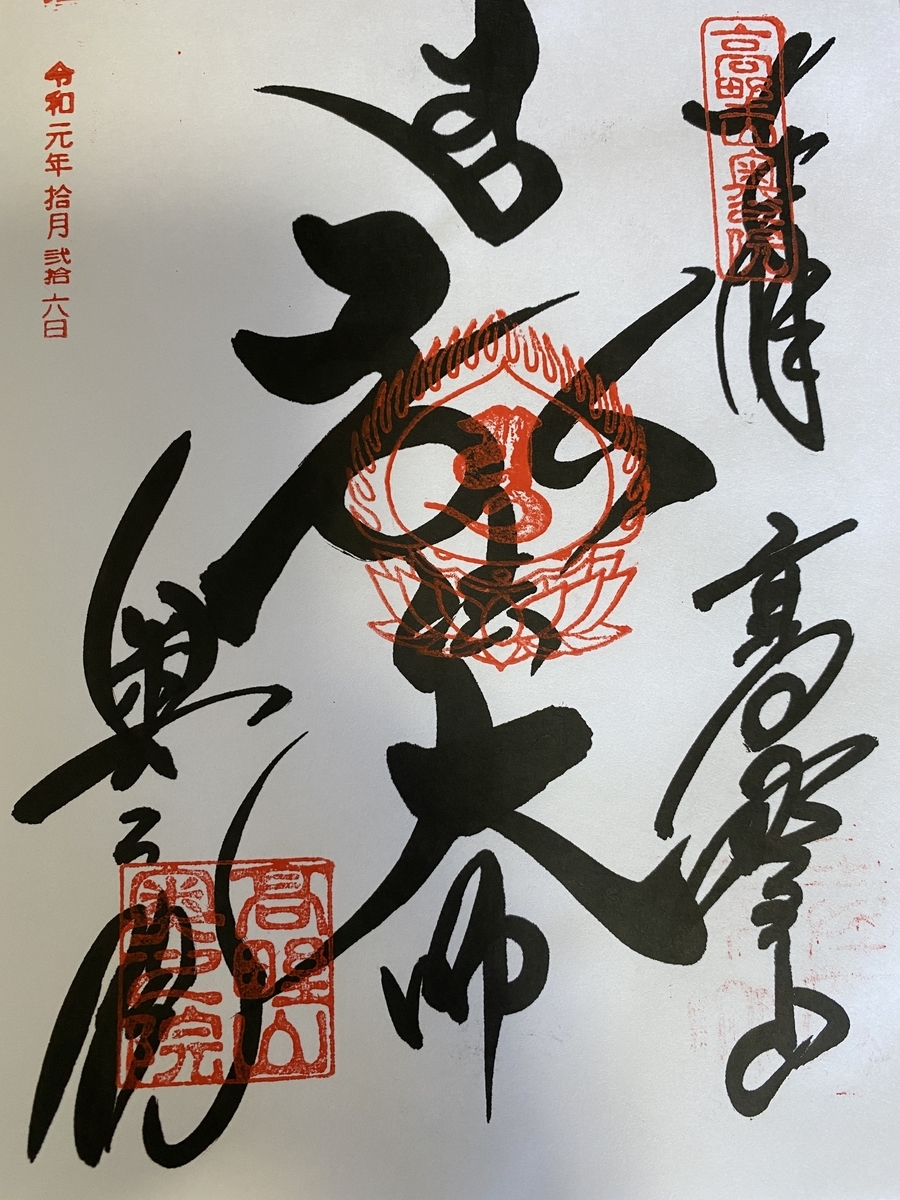 高野山奥之院
奉拝
高野山
弘法大師
令和元年拾月弐拾六日
奥之院
高野山
奥之院